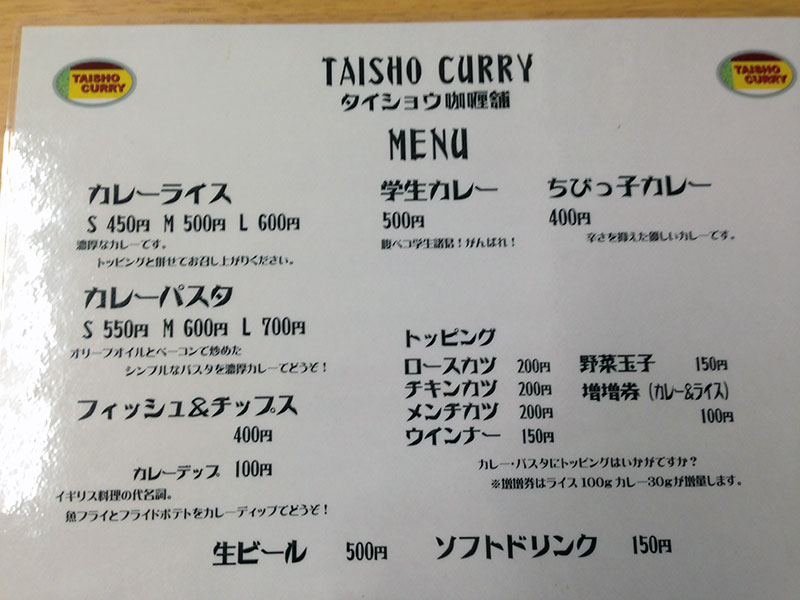 TAISHO CURRY
TAISHO CURRY
TAISHO CURRY
タイショウ咖喱舗
MENU
カレーライス
S 450円 M 500円 L 600円
濃厚なカレーです。
トッピングと併せてお召し上がりください。
学生カレー
500円
腹ペコ学生諸君!がんばれ!
ちびっ子カレー
400円
辛さを抑えた優しいカレーです。
カレーパスタ
S 550円 M 600円 L 700円
オリーブオイルとベーコンで炒めた
シンプルなパスタを濃厚カレーでどうぞ!
フィッシュ&チップス
400円
カレーデップ 100円
イギリス料理の代名詞。
魚フライとフライドポテトをカレーディップでどうぞ!
トッピング
ロースカツ 200円
チキンカツ 200円
メンチカツ 200円
ウインナー 150円
野菜玉子 150円
増増券(カレー&ライス)
100円
カレー・パスタにトッピングはいかがですか?
※増増券はライス100gカレー30gが増量します。
生ビール 500円
ソフトドリンク 150円